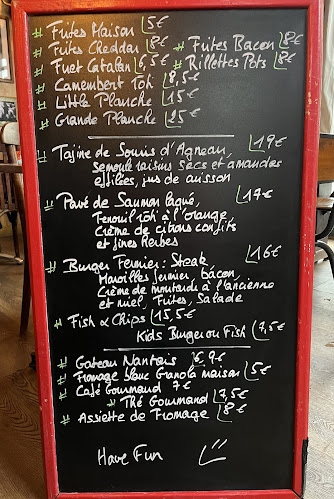 # Frites Maison 5€
# Frites Cheddar 8€ # Frites Bacon 8€
# Fuet Catalan 6,5€ # Rillettes Pots 8€
# Camembert Rôti 8,5€
# Little Planche 15€
# Grande Planche 25€
# Tajine de Souris d'Agneau, 19€
Semoule raisins secs et amandes
effilées, jus de cuisson
# Pavé de Saumon laqué, 17€
Fenouil rôti à l'orange,
Crème de citrons confits
et fines herbes
# Burger Fermier: Steak 16€
Maroilles fermier, bacon,
Crème de moutarde à l'ancienne
et miel, Frites, Salade
# Fish & Chips 15,5€
Kids Burger ou Fish 7,5€
# Gateau Nantais 6,9€
# Fromage blanc Granola maison 5€
# Café Gourmand 7€
# Thé Gourmand 7,5€
# Assiette de Fromage 8€
Have Fun